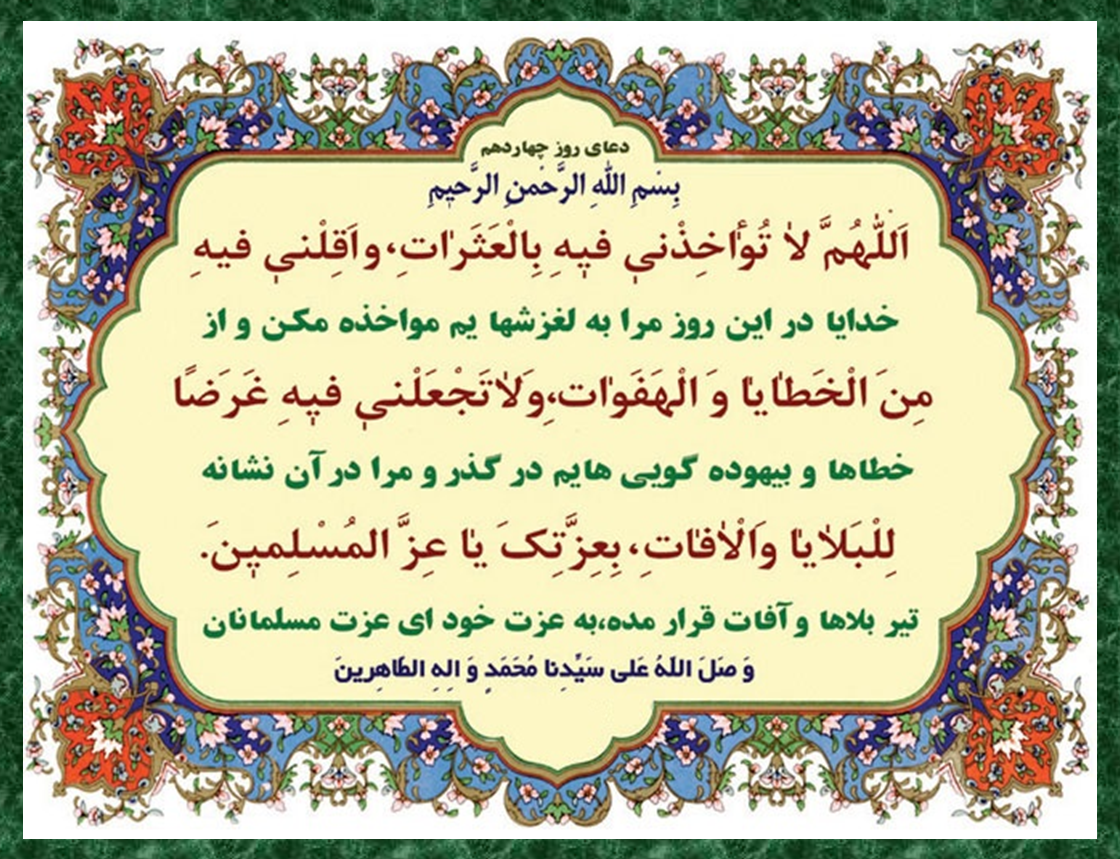 دعای روز چهاردهم
بِسْمِ اللّٰهِ الرَّحْمنِ الرَّحیٖمِ
اَللّٰهُمَّ لاٰ تُؤٰاخِذْنیٖ فیٖهِ بِالْعَثَرٰاتِ، واَقِلْنیٖ فیهِ
خدایا در این روز مرا به لغزشها یم مواخذه مکن و از
مِنَ الْخَطٰایٰا وَ الْهَفَوٰاتِ،وَلاٰتَجْعَلْنیٖ فیٖهِ غَرَضًا
خطاها و بیهوده گویی هایم در گذر و مرا در آن نشانه
لِلْبَلاٰیٰا وَاَلْاٰفٰاتِ، بِعِزَّتِکَ یٰا عِزَّ المُسْلِمیٖنَ.
تیر بلاها و آفات قرار مده،به عزت خود ای عزت مسلمانان
وَ صَلَ اللّهُ عَلی سَیِّدِنا مُحَمَدٍ وَ الِهِ الطّاهِرینَ